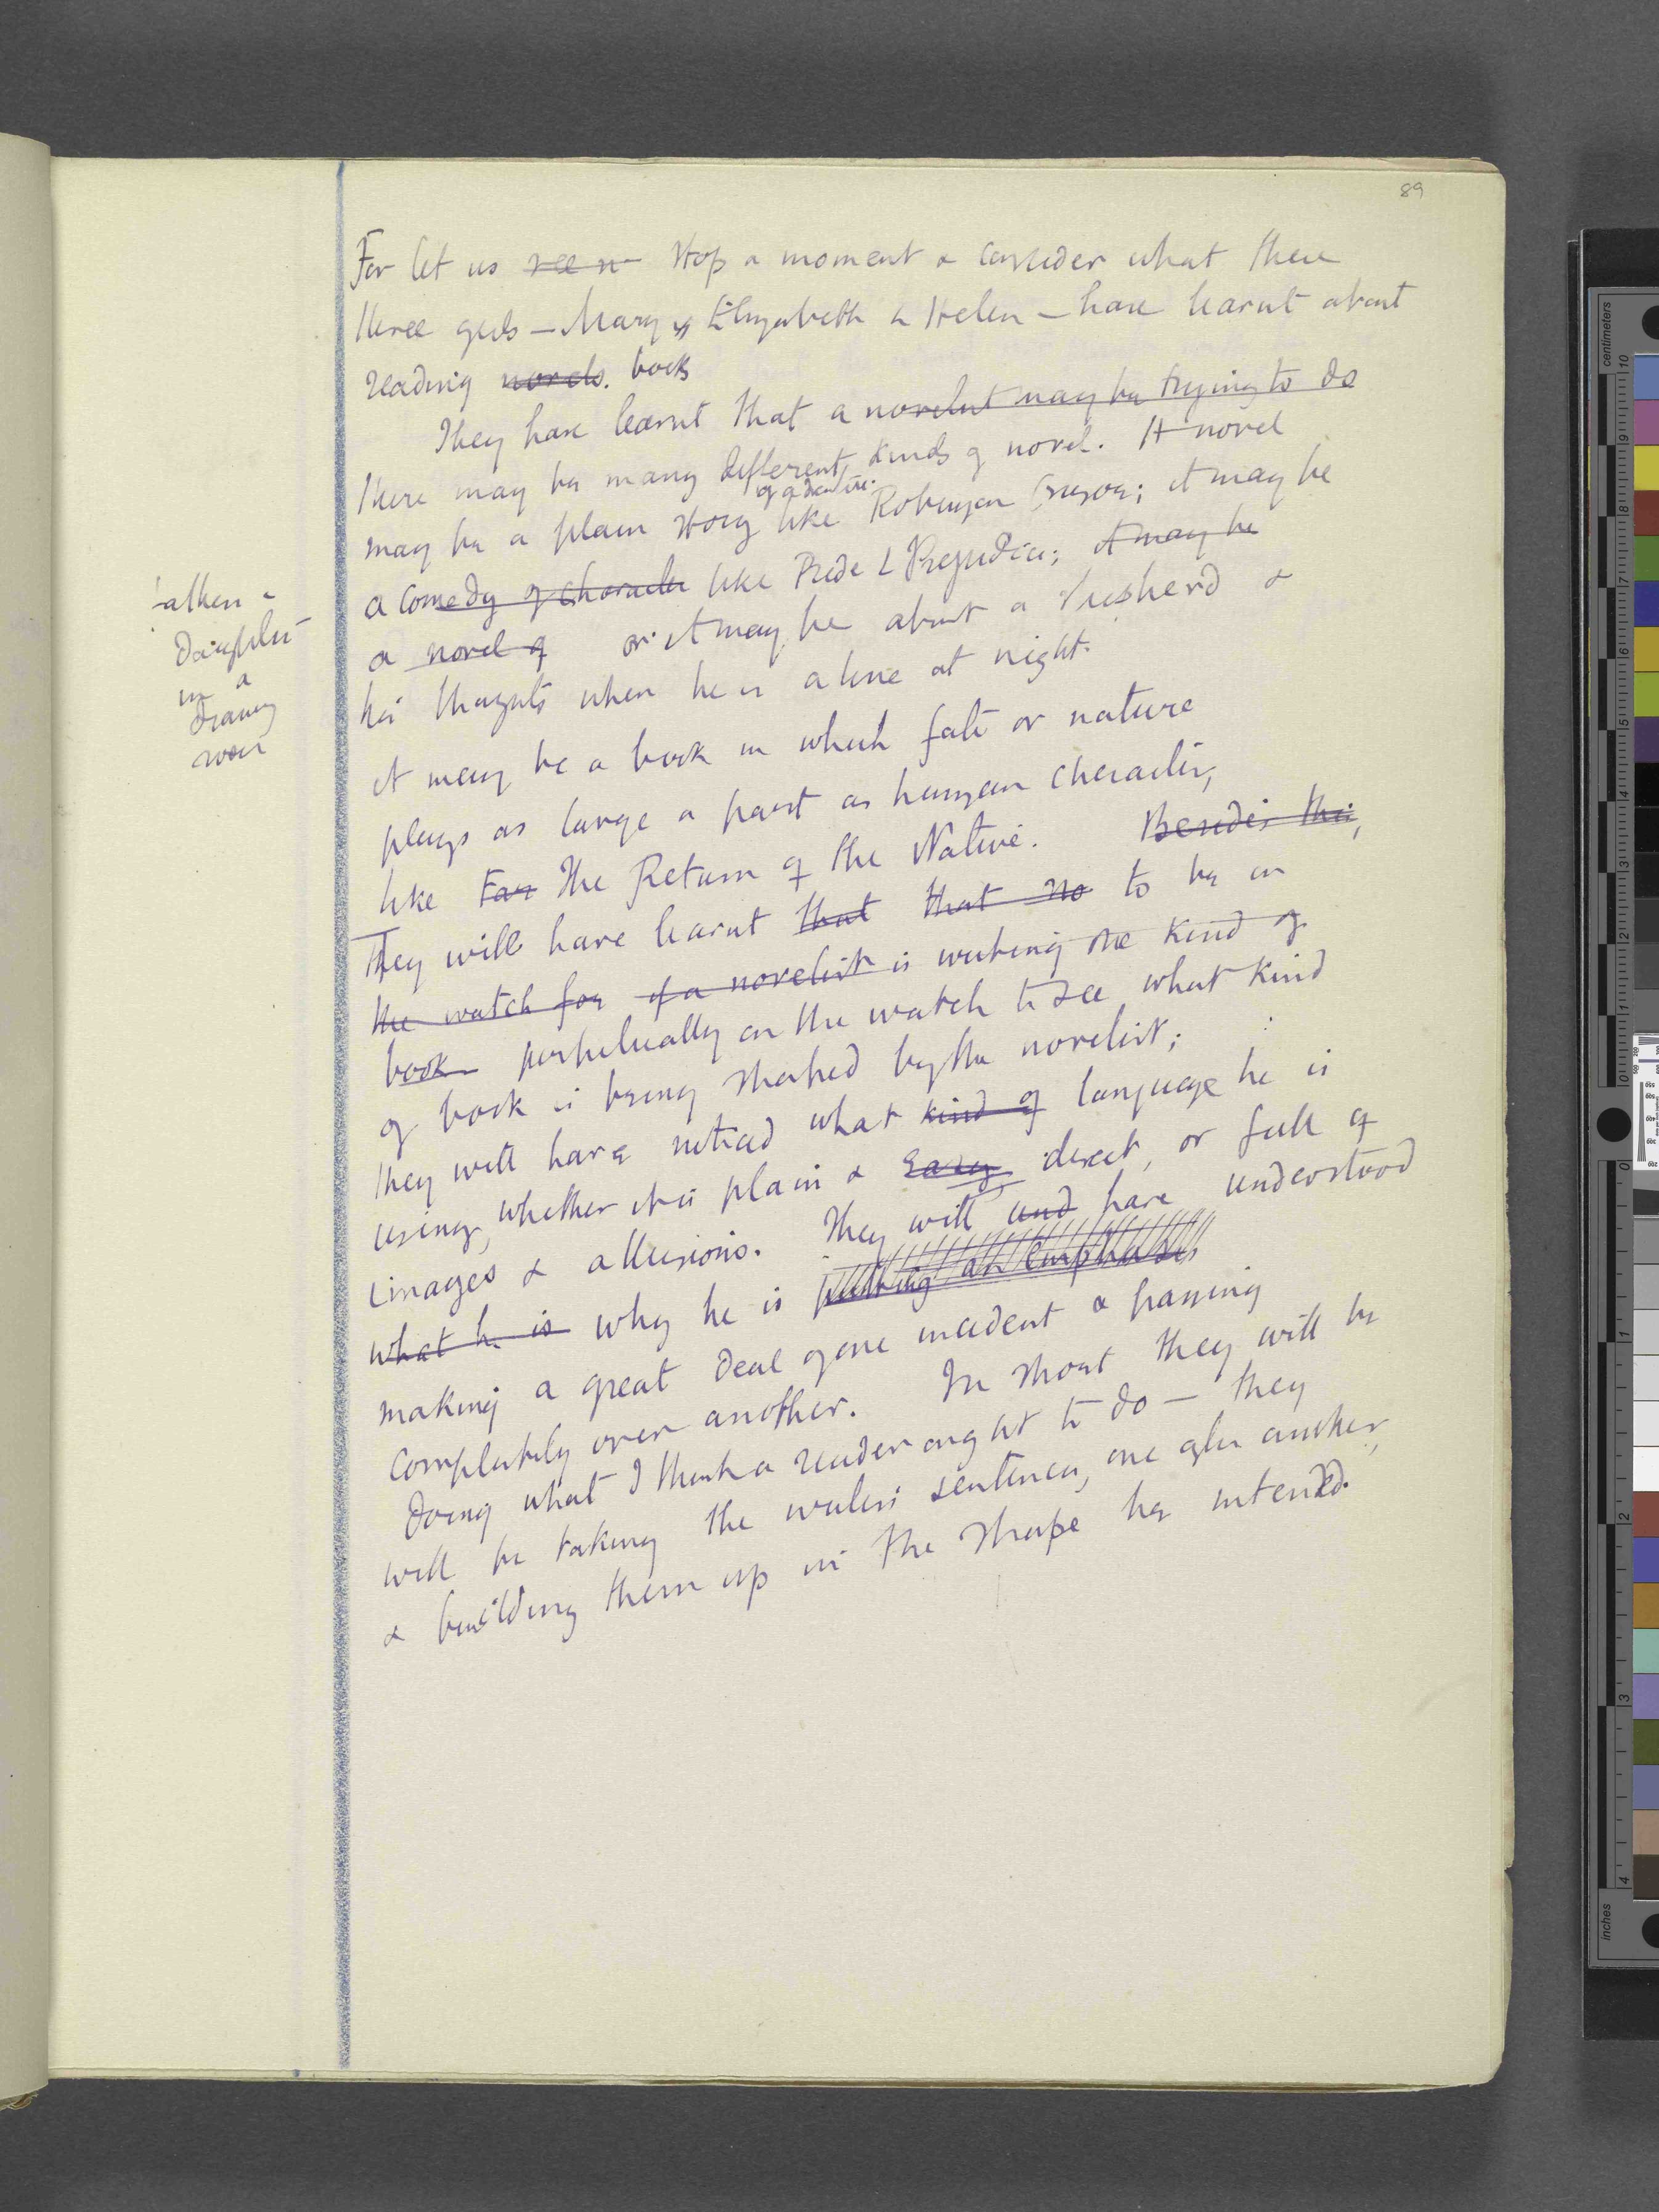 89
For let us see stop a moment & consider what these
three girls – Mary, Elizabeth & Helen – have learnt about
reading novels. books
They have learnt that a novelist may be trying to do
there may be many different kinds of novel. A novel
of adventure.
may be a plain story like Robinson Crusoe; it may be
a comedy of character like Pride & Prejudice; it may be
a novel of or it may be about a shepherd &
his thoughts when he is alone at night.
it may be a book in which fate or nature
plays as large a part as human character,
like Far The Return of the Native. Besides this,
They will have learnt that that no to be on
the watch for if a novelist is writing one kind of
book perpetually on the watch to see what kind
of book is being shaped by the novelist;
they will have noticed what kind of language he is
using, whether it is plain & easy direct, or full of
images & allusions. They will und have understood
what he is why he is putting an emphasis
making a great deal of one incident & passing
completely over another. In short they will be
doing what I think a reader ought to do – they
will be taking the writers sentences, one after another,
& building them up in the shape he intended.
talked
in a
drawing
room